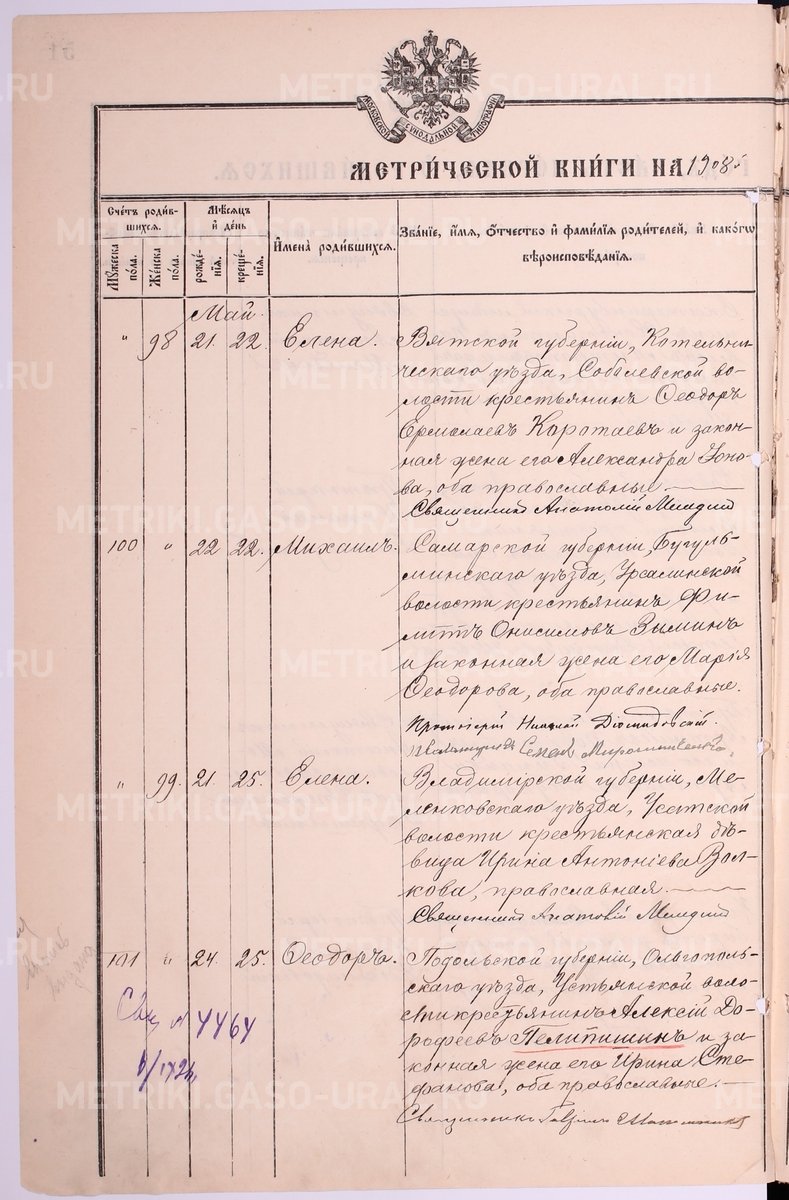 МОСКОВСКОЙ СѴНОДАЛЬНОЙ ТИПОГРАФІИ
МЕТРИ́ЧЕСКОЙ КНИ́ГИ НА 1908
Сче́тъ роди́в-
шихсѧ.
Мѣ́сѧцъ
и҆ де́нь
Мꙋ́жеска по́ла.
Же́нска по́ла.
рожде́нїѧ.
креще́нїѧ.
И҆мена̀ роди́вшихсѧ.
Зва́нїе, и҆́мѧ, ѻ҆́тчество и҆ фами́лїѧ роди́телей, и҆ како́гѡ
вѣроисповѣ́данїѧ.
Май.
" 98 21. 22. Елена.
Вятской губерніи, Котельни-
ческаго уѣзда, Соболевской во-
лости крестьянинъ Ѳеодоръ
Ермолаевъ Коротаевъ и закон-
ная жена его Александра
оба православные
Священникъ Анатолій
100 " 22 22. Михаилъ.
Самарской губерніи, Бугуль-
минскаго уѣзда, Урсалинской
волости крестьянинъ Фи-
липпъ Онисимовъ Зиминъ
и законная жена его Марія
Ѳеодорова, оба православные.
Протоіерей Николай Діомидовскій.
Семенъ
" 99. 21. 25. Елена.
Владимірской губерніи, Ме-
ленковскаго уѣзда, Усадской
волости крестьянская дѣ-
вица Ирина Антоніева Вол-
кова, православная.
Священникъ Анатолій
101 " 24. 25. Ѳеодоръ.
Подольской губерніи, Ольгополь-
скаго уѣзда, Устьянской воло-
сти крестьянинъ Алексій До-
рофеевъ Пелипишинъ и за-
конная жена его Ирина Сте-
фанова, оба православные.
Священникъ
4464
METRIKI.GASO-URAL.RU